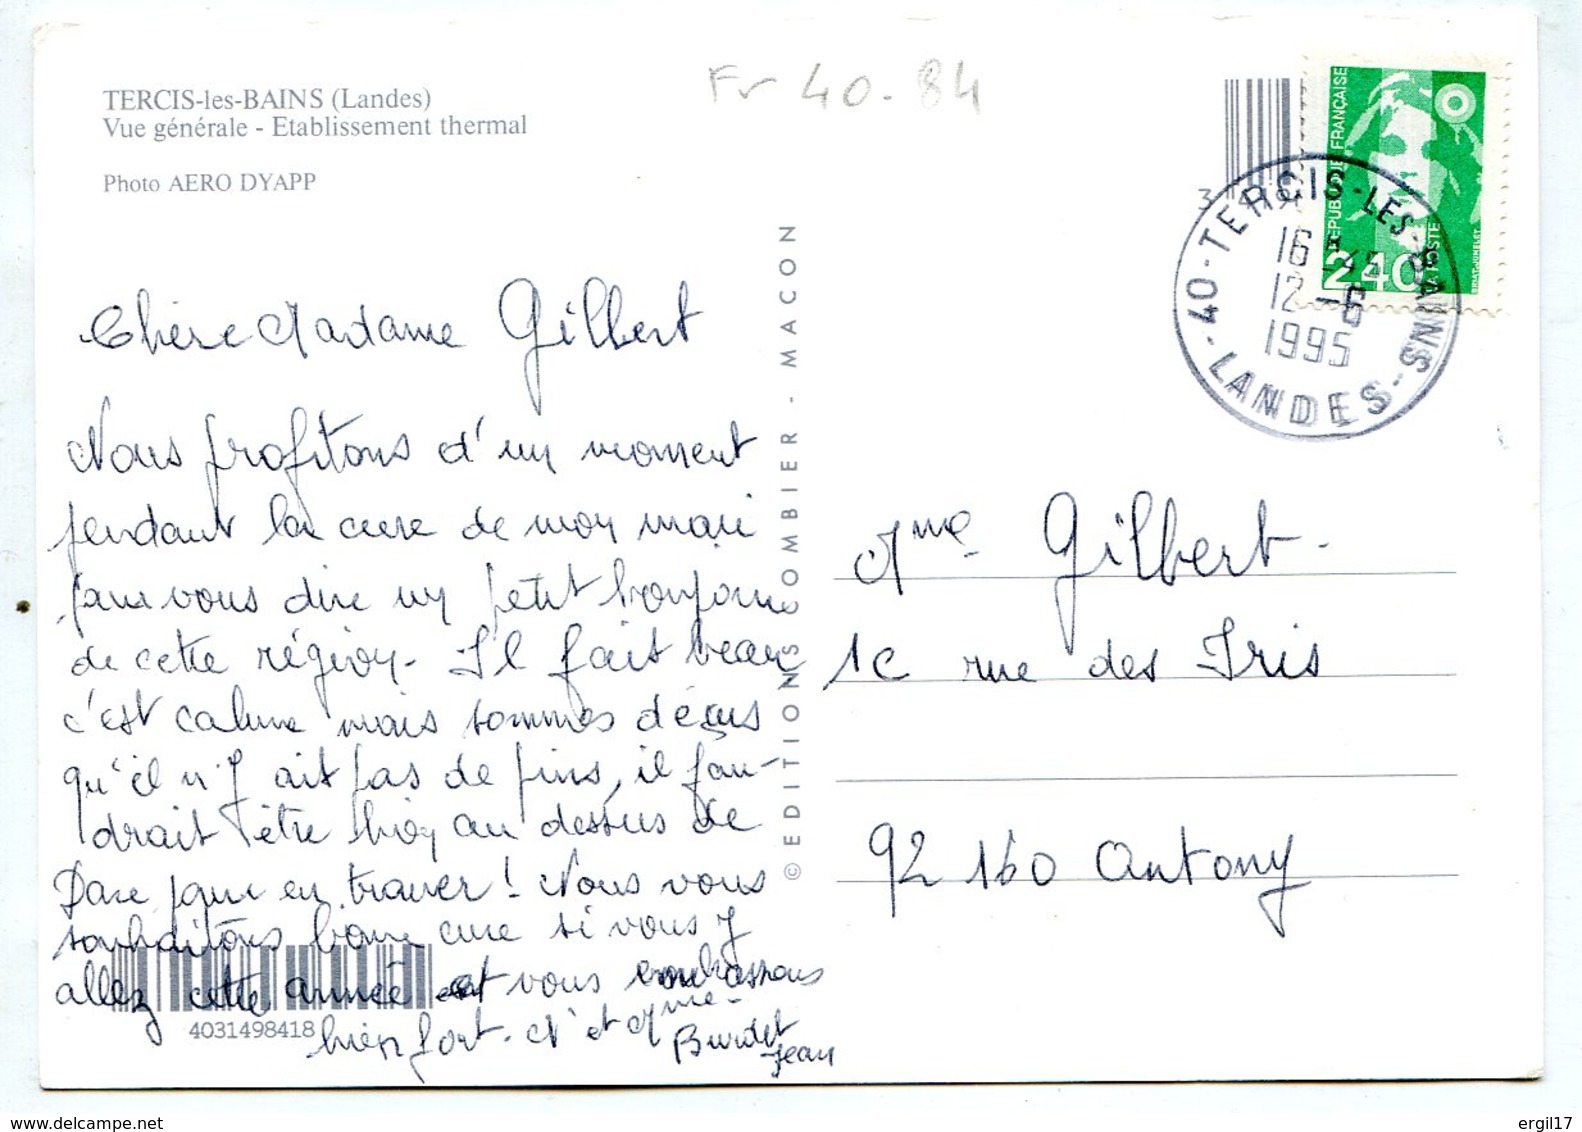 TERCIS-les-BAINS (Landes)
Vue générale - Etablissement thermal
Photo AERO DYAPP
Fr 40.84
3
REPUBLIQUE FRANÇAISE
2,40
LA POSTE
40 - TERCIS - LES - BAINS
16 H 45
12 - 6
1995
- LANDES -
© EDITIONS COMBIER - MACON
Chère Madame Gilbert
Nous profitons d'un moment
pendant la cure de mon mari
pour vous dire un petit bonjour
de cette région. Il fait beau
c'est calme mais sommes déçus
qu'il n'y ait pas de pins, il fau-
drait être bien au dessus de
Dax pour en trouver ! Nous vous
souhaitons bonne cure si vous y
allez cette année et vous embrassons
bien fort. M et Mme
Burdet
Jean
4031498418
Mme Gilbert.
1c rue des Iris
92160 Antony
delcampe.net
ergil17